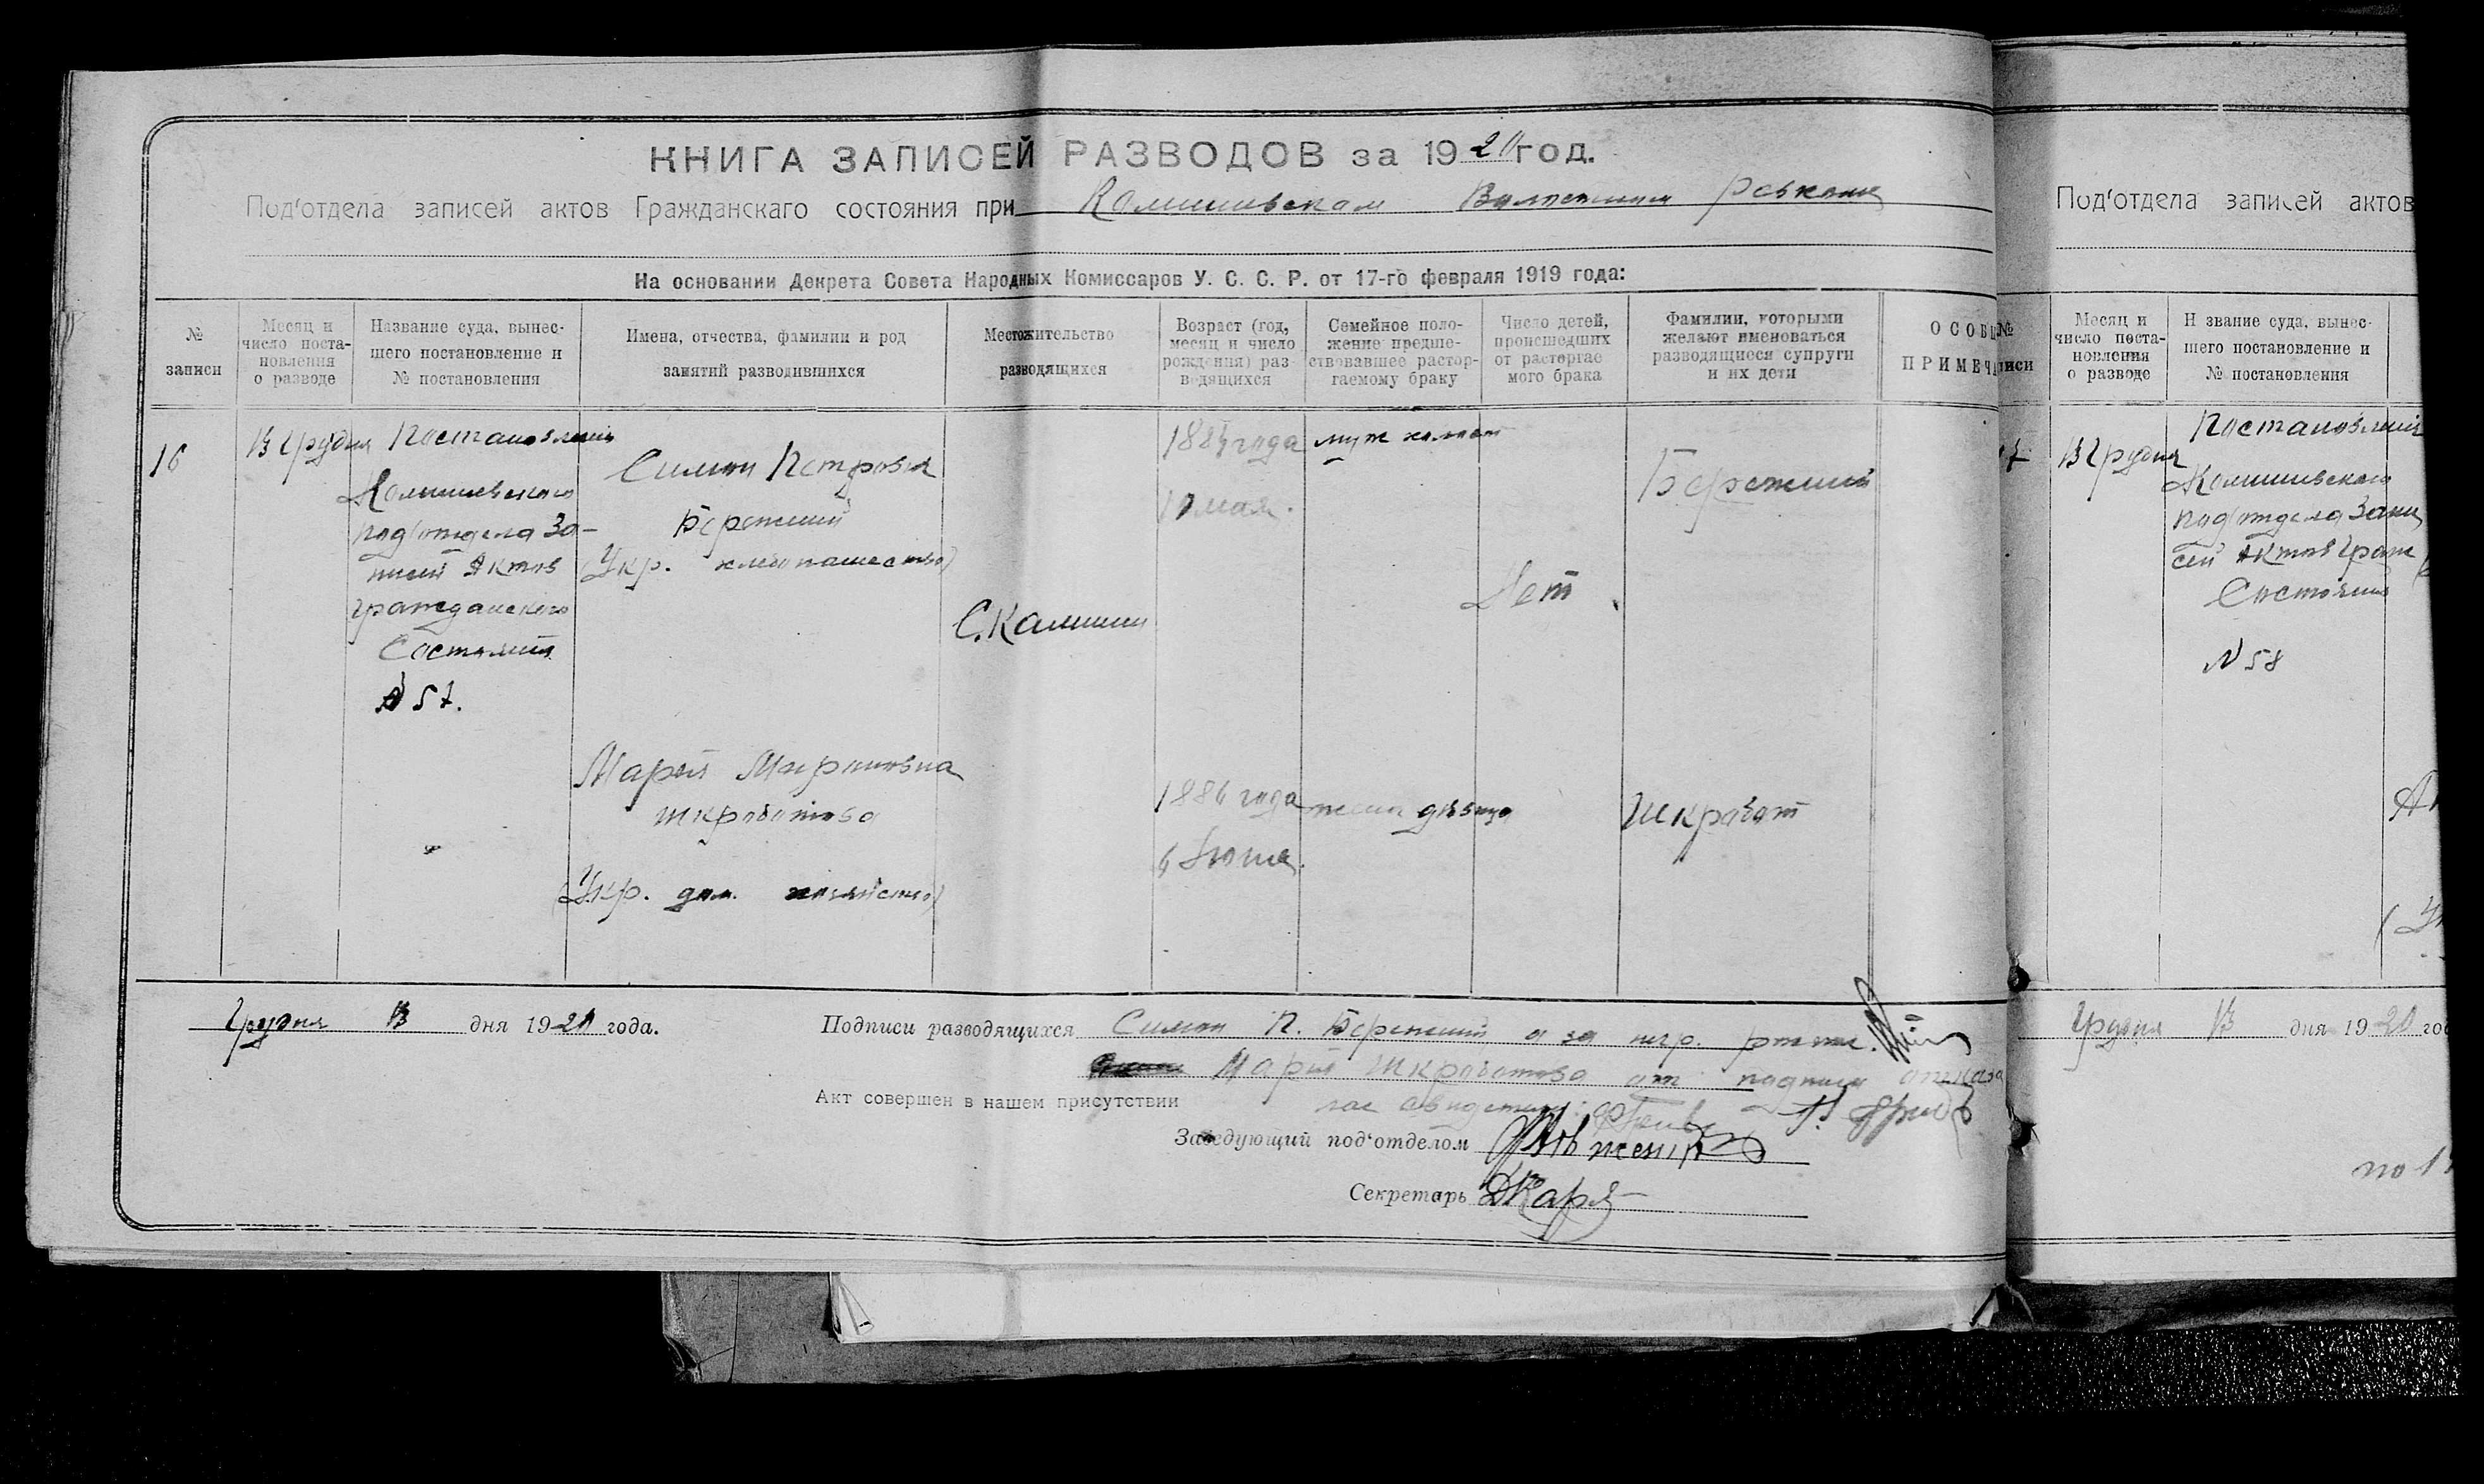 КНИГА ЗАПИСЕЙ РАЗВОДОВ за 1920 год.
Под'отдела записей актов Гражданскаго состояния при
На основании Декрета Совета Народных Комиссаров У. С. С. Р. от 17-го февраля 1919 года:
№
записи
Месяц и
число поста-
новления
о разводе
Название суда, вынес-
шего постановление и
№ постановления
Имена, отчества, фамилии и род
занятий разводившихся
Местожительство
разводящихся
Возраст (год,
месяц и число
рождения) раз-
водящихся
Семейное поло-
жение предше-
ствовавшее растор-
гаемому браку
Число детей,
происшедших
от расторгае
мого брака
Фамилии, которыми
желают именоваться
разводящиеся супруги
и их дети
ОСОБЫ
ПРИМЕЧА
16
13 Грудня
Постановление
под'отдела За-
писей Актов
Гражданского
Состояния
№ 57.
Симон Петрович
Бережний
(Укр. хлебопашество)
Мария Мироновна
Шкработова
(Укр. дом. хозяйство)
года
мая.
1886 года
муж холост
жена девица
Нет
Бережний
Шкработ
Грудня 13 дня 1920 года.
Подписи разводящихся Симон П. Бережний а за
Мария Шкработова от подписи отказа
лас
Акт совершен в нашем присутствии
Заведующий под'отделом
Секретарь
Под'отдела записей актов
№
писи
Месяц и
число поста-
новления
о разводе
Н звание суда, вынес-
шего постановление и
№ постановления
17
13 Грудня
Постановление
под'отдела Запи
сей Актов Граж
Состояния
№ 58
Грудня 13 дня 1920 го